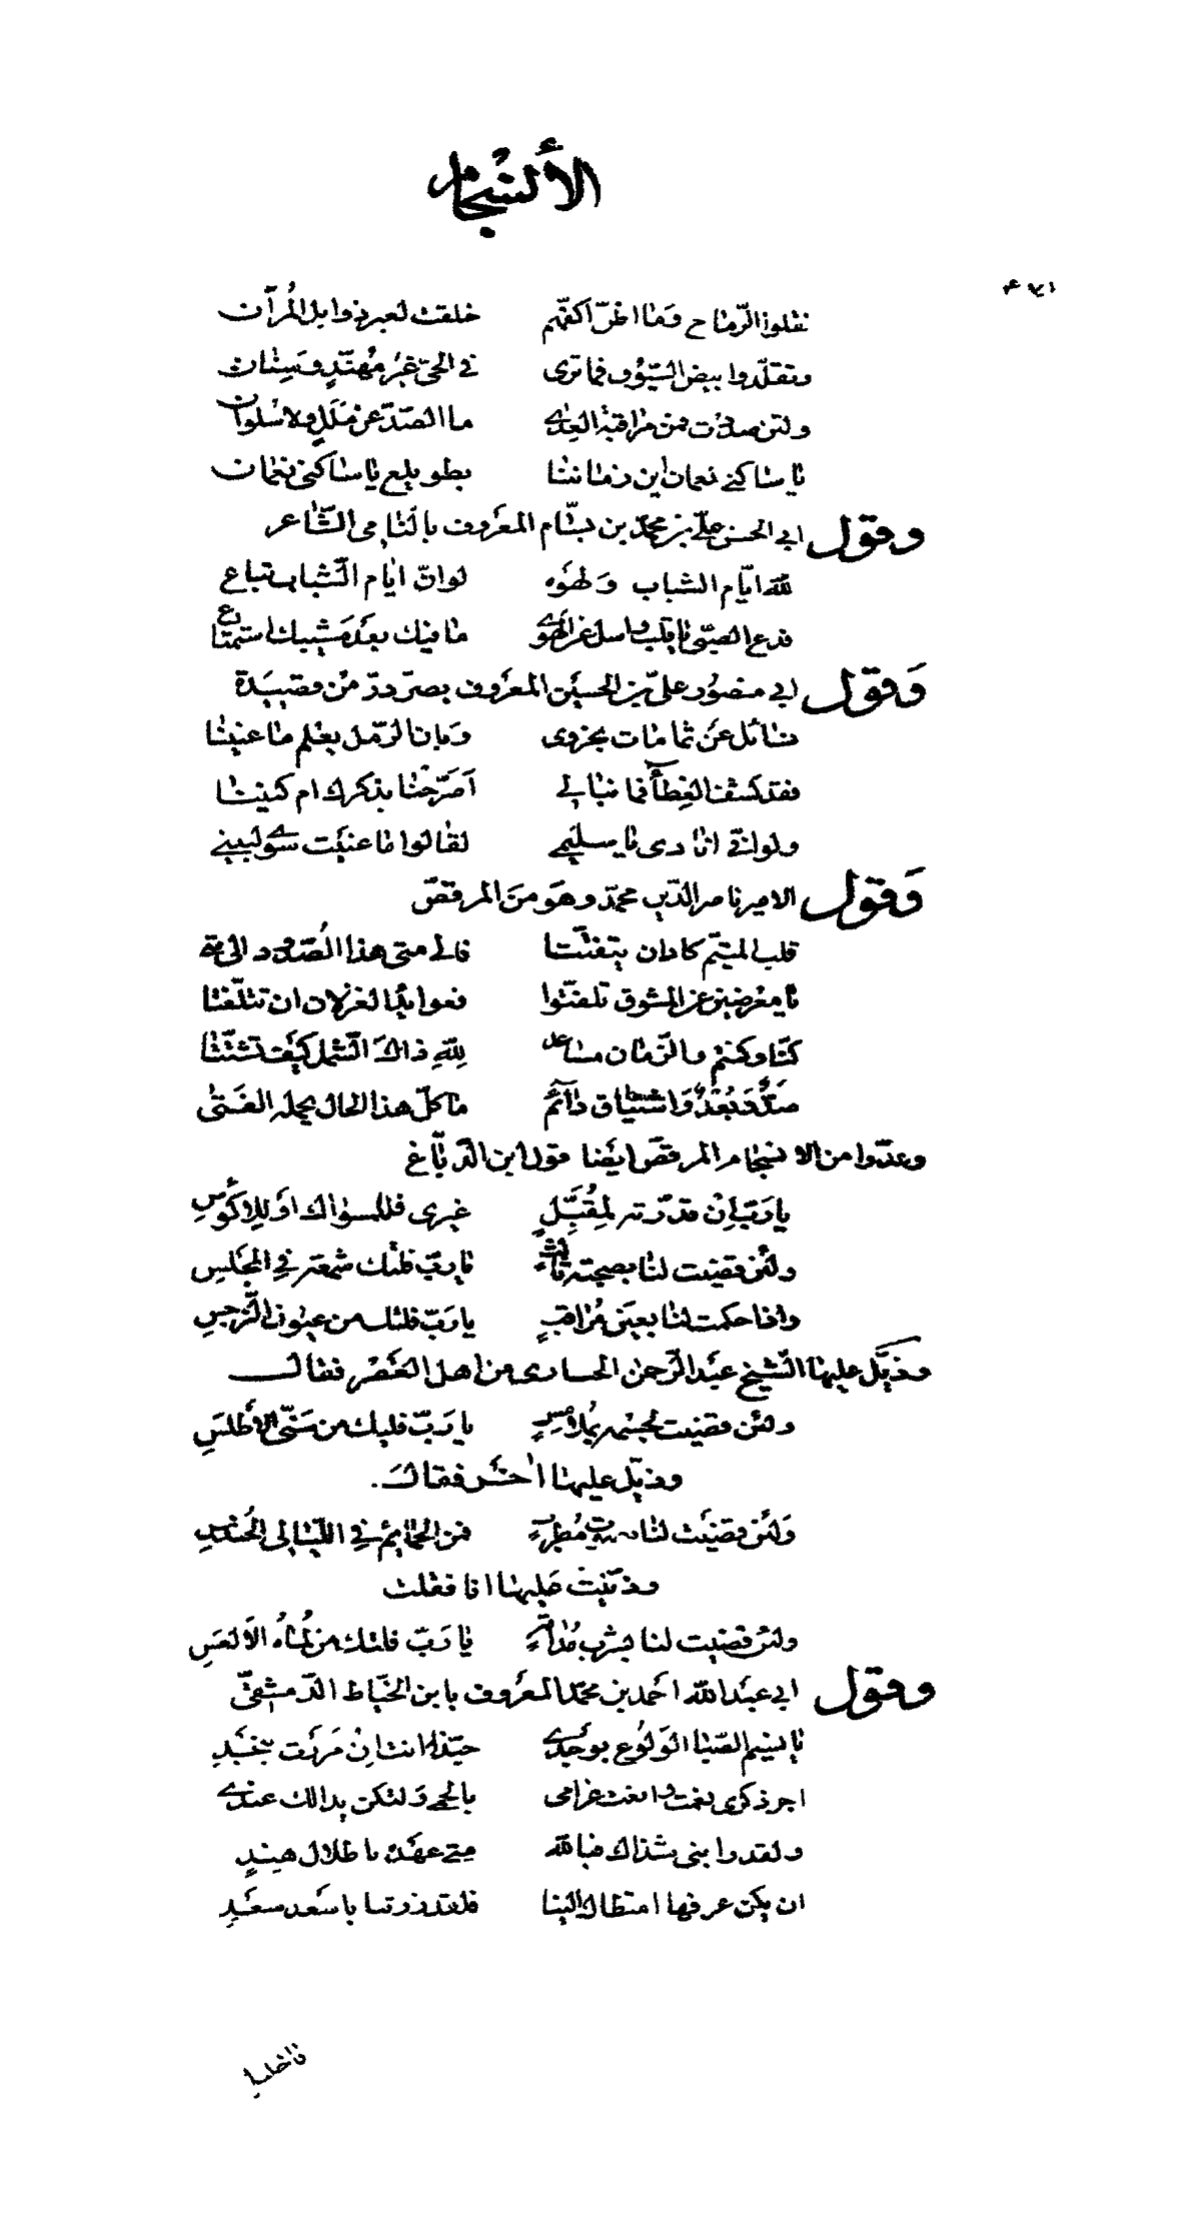 الأنسجام
نقلوا الرّماح وَما اظنّ اكفّهم خلقت لغير ذوابل المُرّان
وتقلّدوا بيض السّيوف فما ترى في الحيّ غير مُهنّدٍ وسِنان
ولئن صددت فمن مراقبة العدى ما الصّدّ عن مللٍ ولا سُلوان
يا ساكني نعمان اين زماننا بطويلع يا ساكني نعمان
وقول ابي الحسن عليّ بن محمّد بن بسّام المعروف بالبسّامي الشّاعر
لله ايّام الشباب وَلهوُه لوانّ ايّام الشّباب تباع
فدع الصبّى يا قلب واسل عن الهوى ما فيك بعدَ مَشيبك استمتاع
وَقول ابي منصور علي بن الحسين المعروف بصرّدرّ من قصيدة
نسائل عن ثمامات بحزوى وبان الرّمل يعلم ما عنينا
فقد كشف الغِطآء فما نبالي أصرّحنا بذكرك ام كنينا
ولو انّي انادي يا سليمى لقالوا ما عنيت سوى لبيني
وَقول الامير ناصر الدّين محمّد وهو منَ المرقصّ
قلب المتيّم كاد ان يتفتّتا فالى متى هذا الصّدود الى متى
يا مُعرضين عن المشوق تلفّتوا فعوايد الغزلان ان تتلفّتا
كنّا وكنتم والزّمان مساعد لِلهِ ذاك الشّمل كيف تشتّتا
صدّ وَبُعدٌ وَاشتياق دَآئم ما كلّ هذا الحال يحمله الفَتى
وعدّوا من الانسجام المرقص ايضا قول ابن الدّبّاغ
يا ربّ اِن قدّرته لمُقبِّلٍ غيري فللمسواك اَو للِاكؤسِ
ولئن قضيت لنا بصحبته ثالث يا ربّ فليك شمعة في المجلسِ
واذا حكمت لنا بعين مُراقبٍ يا ربّ فلتك من عيون النّرجسِ
وذيّل عليها الشّيخ عبد الرّحمن من اهل العَصر فقال
ولئن قضيت لجسمه بمُلامسٍ يا ربّ فليك من سَنيّ الاطلسِ
وذيّل عليها اٰخَر فقال.
وَلئن قضيت لنا مُطربٍ فمن الحمآئم في اللّيالي الحُندسِ
وذيّلت عليها انا فقلت
ولئن قضيت لنا بشرب مُدامةٍ يا رَبّ فلتك من لُماهُ الاَلعَسِ
وقول ابي عبد الله احمد بن محمّد المعروف بابن الخيّاط الدّمشقيّ
يا نسيم الصّبا الوَلوُع بوجدى حبّذا انت اِن مَررت بنجَدِ
اجر ذكري نعمت وانعت غرامي بالحمى وَلتكن يدا لك عندى
ولقد رابني شذاك فبالله متى عهده باطلال هندٍ
ان يكن عرفها امتطاك الينا فلقد زرتنا باسعد سعدِ